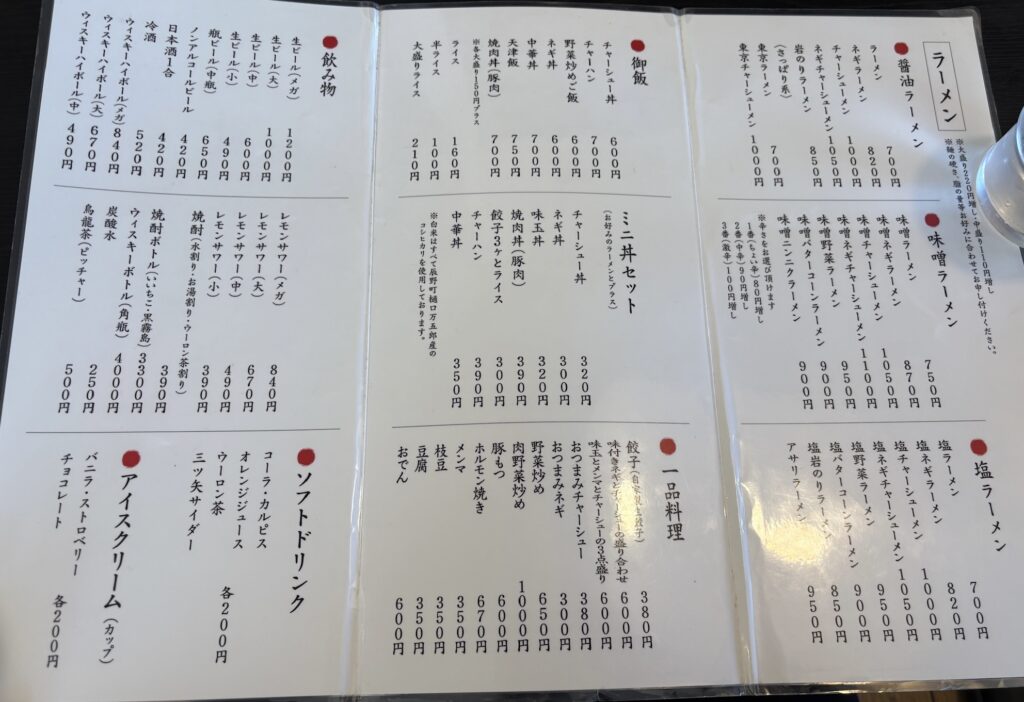 ラーメン
※大盛り220円増し・中盛り110円増し
※麺の硬さ、脂の量等お好みに合わせてお申し付けください。
醤油ラーメン
ラーメン 700円
ネギラーメン 820円
チャーシューメン 1000円
ネギチャーシューメン 1050円
岩のりラーメン 850円
(さっぱり系)
東京ラーメン 700円
東京チャーシューメン 1000円
味噌ラーメン
味噌ラーメン 750円
味噌ネギラーメン 870円
味噌チャーシューメン 1050円
味噌ネギチャーシューメン 1100円
味噌野菜ラーメン 950円
味噌バターコーンラーメン 900円
味噌ニンニクラーメン 900円
※辛さをお選び頂けます
1番(ちょい辛)80円増し
2番(中辛)90円増し
3番(激辛)100円増し
塩ラーメン
塩ラーメン 700円
塩ネギラーメン 820円
塩チャーシューメン 1000円
塩ネギチャーシューメン 1050円
塩野菜ラーメン 950円
塩バターコーンラーメン 900円
塩岩のりラーメン 850円
アサリラーメン 950円
御飯
チャーシュー丼 600円
チャーハン 700円
野菜炒めご飯 600円
ネギ丼 600円
中華丼 700円
天津飯 700円
焼肉丼(豚肉) 750円
※各大盛り150円プラス
ライス 160円
半ライス 100円
大盛りライス 210円
ミニ丼セット
(お好みのラーメンとプラス)
チャーシュー丼 320円
ネギ丼 300円
味玉丼 320円
焼肉丼(豚肉) 390円
餃子3ヶとライス 300円
チャーハン 390円
中華丼 350円
※白米はすべて辰野町樋口万五郎産の
コシヒカリを使用しております。
一品料理
餃子(自家製生餃子) 380円
味付きネギとチャーシューの盛り合わせ 600円
味玉とメンマとチャーシューの3点盛り 600円
おつまみチャーシュー 380円
おつまみネギ 300円
野菜炒め 650円
肉野菜炒め 1000円
豚もつ 600円
ホルモン焼き 670円
メンマ 350円
枝豆 350円
豆腐 350円
おでん 600円
飲み物
生ビール(メガ) 1200円
生ビール(大) 1000円
生ビール(中) 600円
生ビール(小) 490円
瓶ビール(中瓶) 650円
ノンアルコールビール 420円
日本酒1合 420円
冷酒 520円
ウィスキーハイボール(メガ) 840円
ウィスキーハイボール(大) 670円
ウィスキーハイボール(中) 490円
レモンサワー(メガ) 840円
レモンサワー(大) 670円
レモンサワー(中) 490円
レモンサワー(小) 390円
焼酎(水割り・お湯割り・ウーロン茶割り) 390円
焼酎ボトル(いいちこ・黒霧島) 3300円
ウィスキーボトル(角瓶) 4000円
炭酸水 250円
烏龍茶(ピッチャー) 500円
ソフトドリンク
コーラ・カルピス
オレンジジュース
ウーロン茶 各200円
三ツ矢サイダー
アイスクリーム(カップ)
バニラ・ストロベリー
チョコレート 各200円